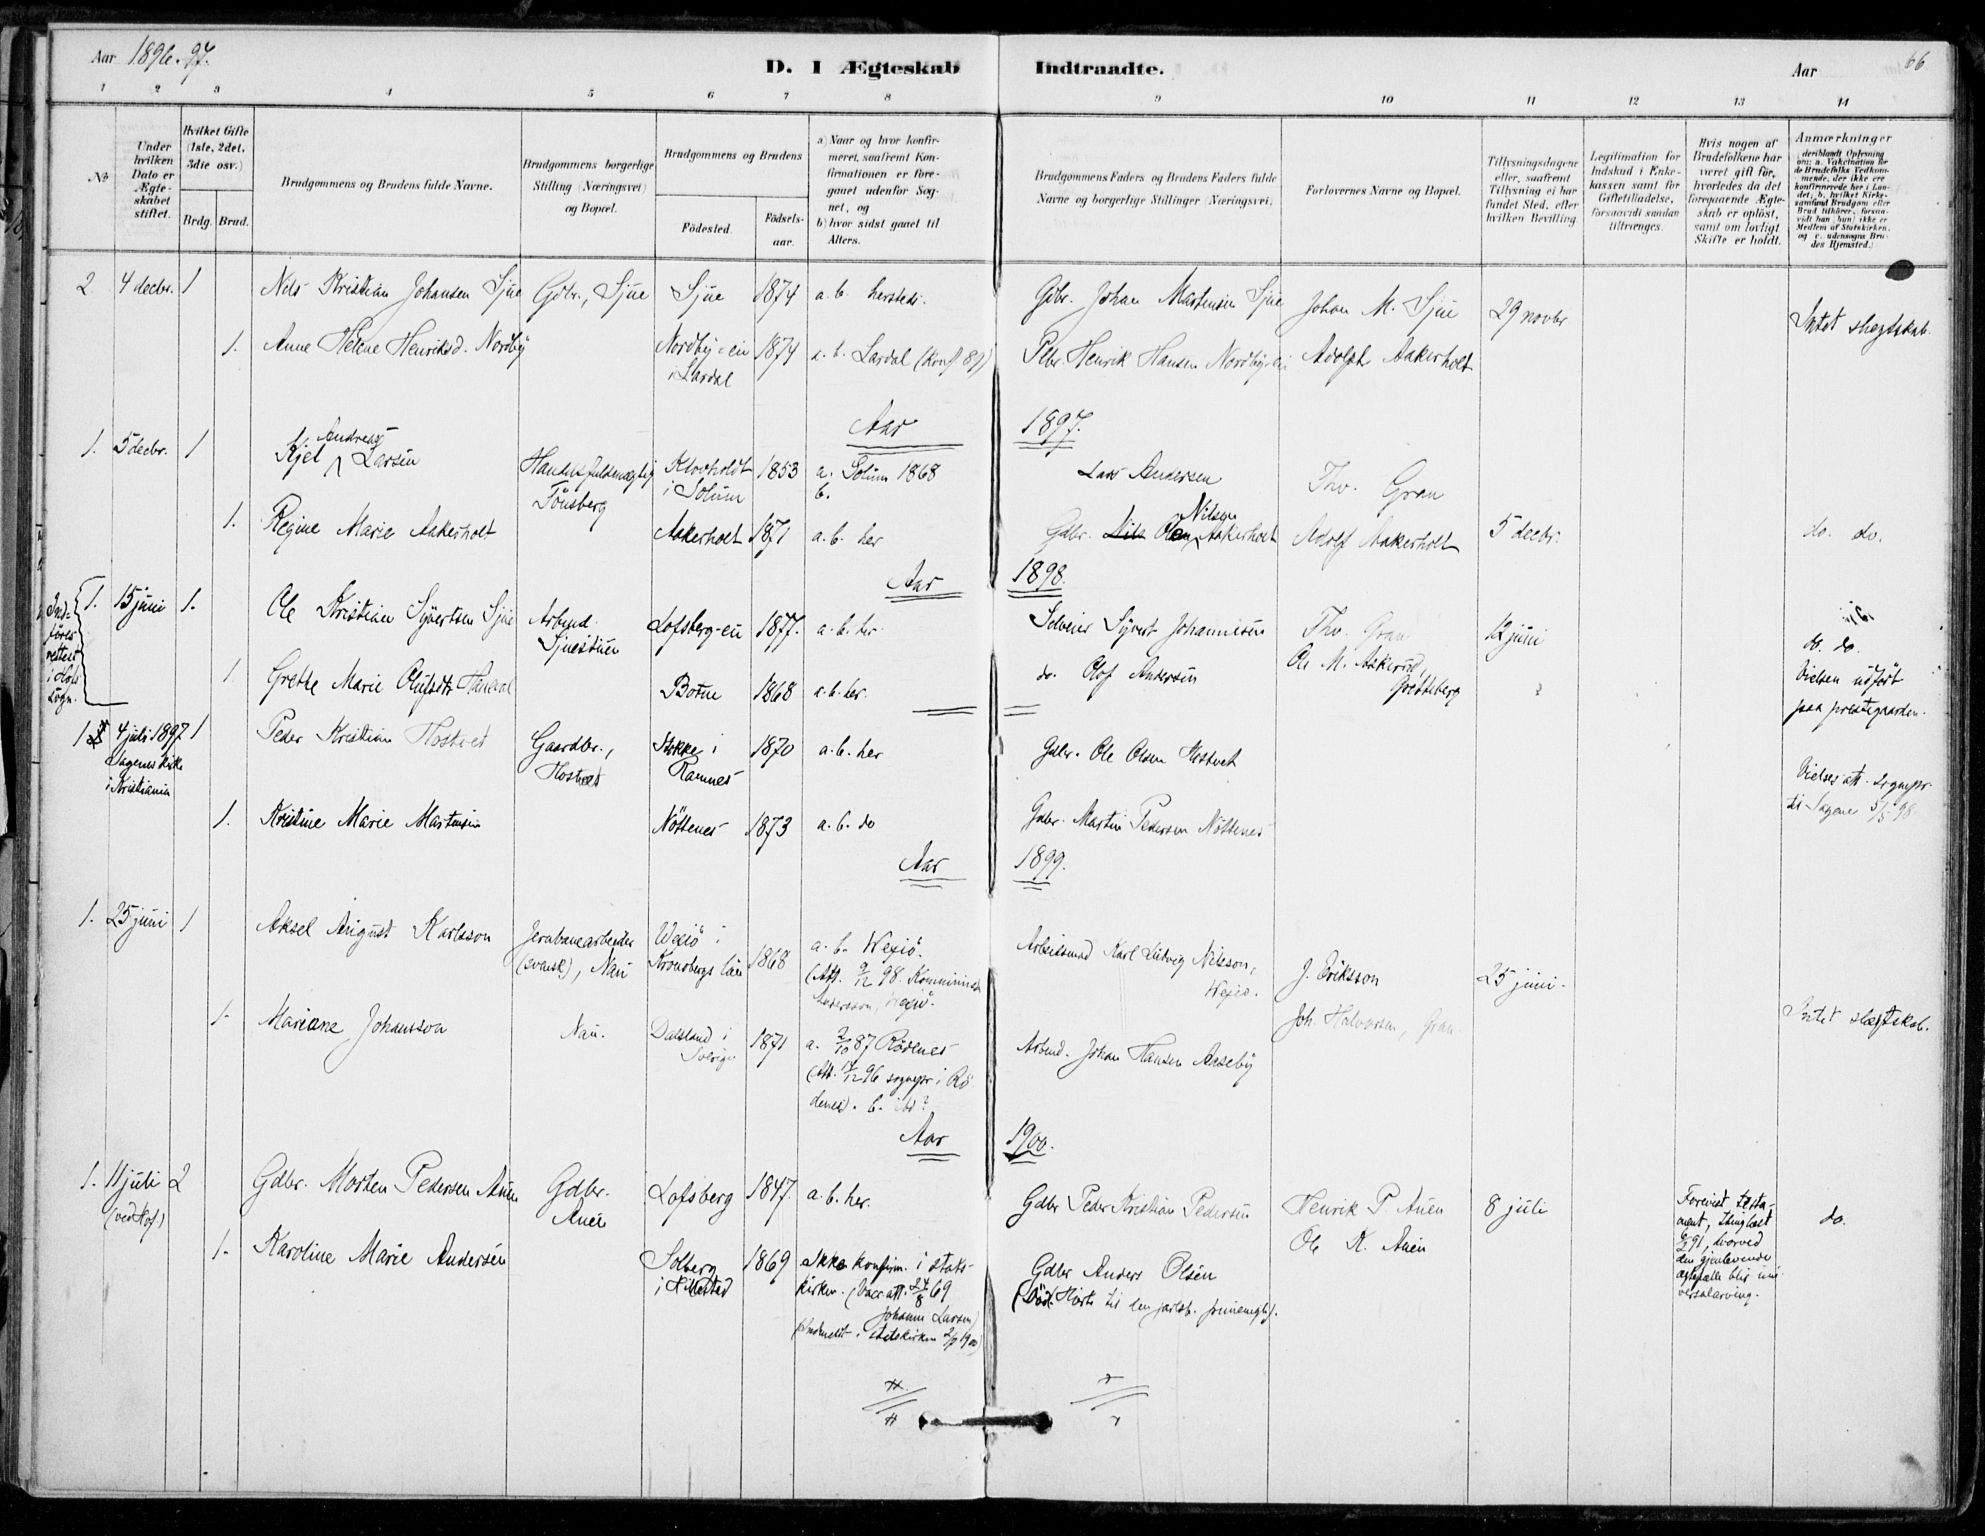 Aar 1896-97.
D. I Ægteskab Indtraadte.
Aar
66
1 2 3 4 5 6 7 8 9 10 11 12 13 14
No
Under hvilken Dato er Ægteskabet stiftet.
Hvilket Gifte (1ste, 2det, 3die osv.)
Brdg. Brud.
Brudgommens og Brudens fulde Navne.
Brudgommens borgerlige Stilling (Næringsvei) og Bopæl.
Brudgommens og Brudens
Fødested.
Fødselsaar.
a) Naar og hvor konfirmeret, saafremt Konfirmationen er foregaaet udenfor Sognet, og
b) hvor sidst gaaet til Alters.
Brudgommens Faders og Brudens Faders fulde Navne og borgerlige Stillinger (Næringsvei).
Forlovernes Navne og Bopæl.
Tillysningsdagene eller, saafremt Tillysning ei har fundet Sted, efter hvilken Bevilling.
Legitimation for Indskud i Enkekassen samt for Giftetilladelse, forsaavidt saadan tiltrænges.
Hvis nogen af Brudefolkene har været gift før, hvorledes da det foregaaende Ægteskab er opløst, samt om lovligt Skifte er holdt.
Anmærkninger
(deriblandt Oplysning om: a. Vakcination for de Brudefolks Vedkommende, der ikke ere konfirmerede her i Landet; b. hvilket Kirkesamfund Brudgom eller Brud tilhører, forsaavidt han (hun) ikke er Medlem af Statskirken, og c. udensogns Brudes Hjemsted.)
2 4 decbr. 1 Nils Kristian Johansen Sjue Gdbr., Sjue Sjue 1874 a. b. hersteds. Gdbr. Johan Martinsen Sjue Johan M. Sjue 29 novbr Intet slegtskab.
1. Anne Helene Henriksd. Nordby Nordby-ei i Lardal 1874 a. b. Lardal (konf. 89) Pbr. Henrik Hansen Nordby-ei Adolf Aakerholt
Aar 1897.
1. 5 decbr. 1 Kjel Andreas Larsen Handelsfuldmægtig Tönsberg Klovholdt i Solum 1853 a. Solum 1868 b. Lars Andersen Thv. Gran
1. Regine Marie Aakerholt Aakerholt 1871 a. b. her Gdbr. Nils Olen Nilsen Aakerholt Adolf Aakerholt 5 decbr. do. do.
Aar 1898.
1. 15 juni 1. Ole Kristian Syvertsen Sjue Arbmd. Sjuestuen Lofsberg-ei 1877. a. b. her. Selveier Syvert Johannesen Thv. Gran 12 juni do. do.
1 Grethe Marie Olufsdtr Haneval Botne 1868 a. b. her. do. Olof Andersen Ole M. Askerud, Grötteberg Vielsen udført paa prestegaarden.
1 4 juli 1897 Sagenes kirke i Kristiania 1 Peder Kristian Hostvet Gaardbr., Hostvet Stokke i Ramnes 1870 a. b. her Gdbr. Ole Olsen Hostvet Vielses att. sognepr. til Sagene 5/5 98.
1. Kristine Marie Martinsen Nöttenes 1873 a. b. do Gdbr. Martin Pedersen Nöttenes
Aar 1899.
1. 25 juni 1 Aksel August Karlsson Jernbanearbeider (svensk), Nau Wexiö i Kronobergs län 1868 a. b. Wexiö. (Att. 9/12 98. Komminister Andersson, Wexiö. Arbeidsmand Karl Ludvig Nilsson, Wexiö. J. Eriksson 25 juni.
1. Mariane Johansson Nau. Dalsland i Sverige 1871 a. 2/10 87 Rödenes (Att. 17/12 96 sognepr. i Rödenes). b. ibd? Arbmd. Johan Hansen Aaseby Joh. Halvorsen, Gran Intet slægtskab.
Aar 1900.
1. 11 juli (ved Hof) 2 Gdbr. Morten Pedersen Auen Gdbr. Auen Lofsberg 1847. a. b. her. Gdbr Peder Kristian Pedersen Henrik P. Auen 8 juli Forevist testament, thinglæst 91, hvorved den gjenlevende ægtefælle blir universalarving. do.
1. Karoline Marie Andersen Solberg i Hillestad 1869 Ikke konfirm. i statskirken. (Vacc.att. 24/8 69 Johanne Larsen) (Indmeldt i statskirken 2/7 1900) Gdbr Anders Olsen (Död. Hørte til den jarlsb. frimenighed). Ole K. Auen